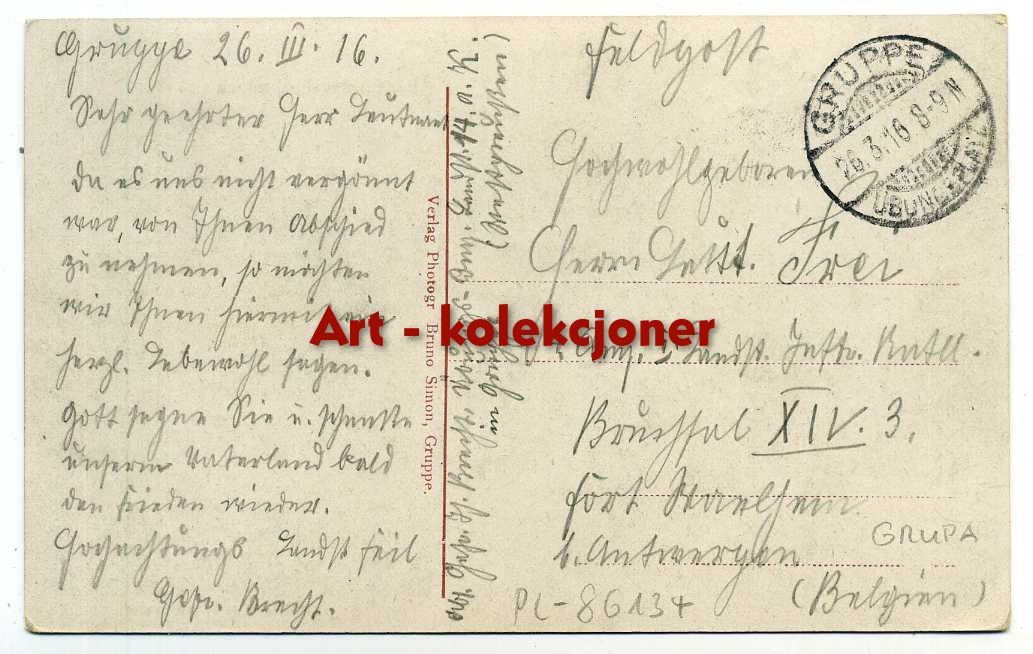 Gruppe 26. III. 16.
Sehr geehrter Herr Leutnant
Da es uns nicht vergönnt
war, von Ihnen Abschied
zu nehmen, so möchten
wir Ihnen hiermit ein
herzl. Lebewohl sagen.
Gott segne Sie u. schenke
unserm Vaterland bald
den Frieden wieder.
Hochachtungs Landst. Feil
Gefr. Brecht.
Verlag Photogr Bruno Simon, Gruppe.
Feldpost
GRUPPE
26.3.16 8-9 N
ÜBUNGSPLATZ
Hochwohlgeboren
Herrn Leutt. Frei
Comp. I Landst. Inftr. Batll.
Bruchsal XIV. 3.
Fort Waelhem
b. Antwerpen
(Belgien)
GRUPA
PL-86134
Art - kolekcjoner